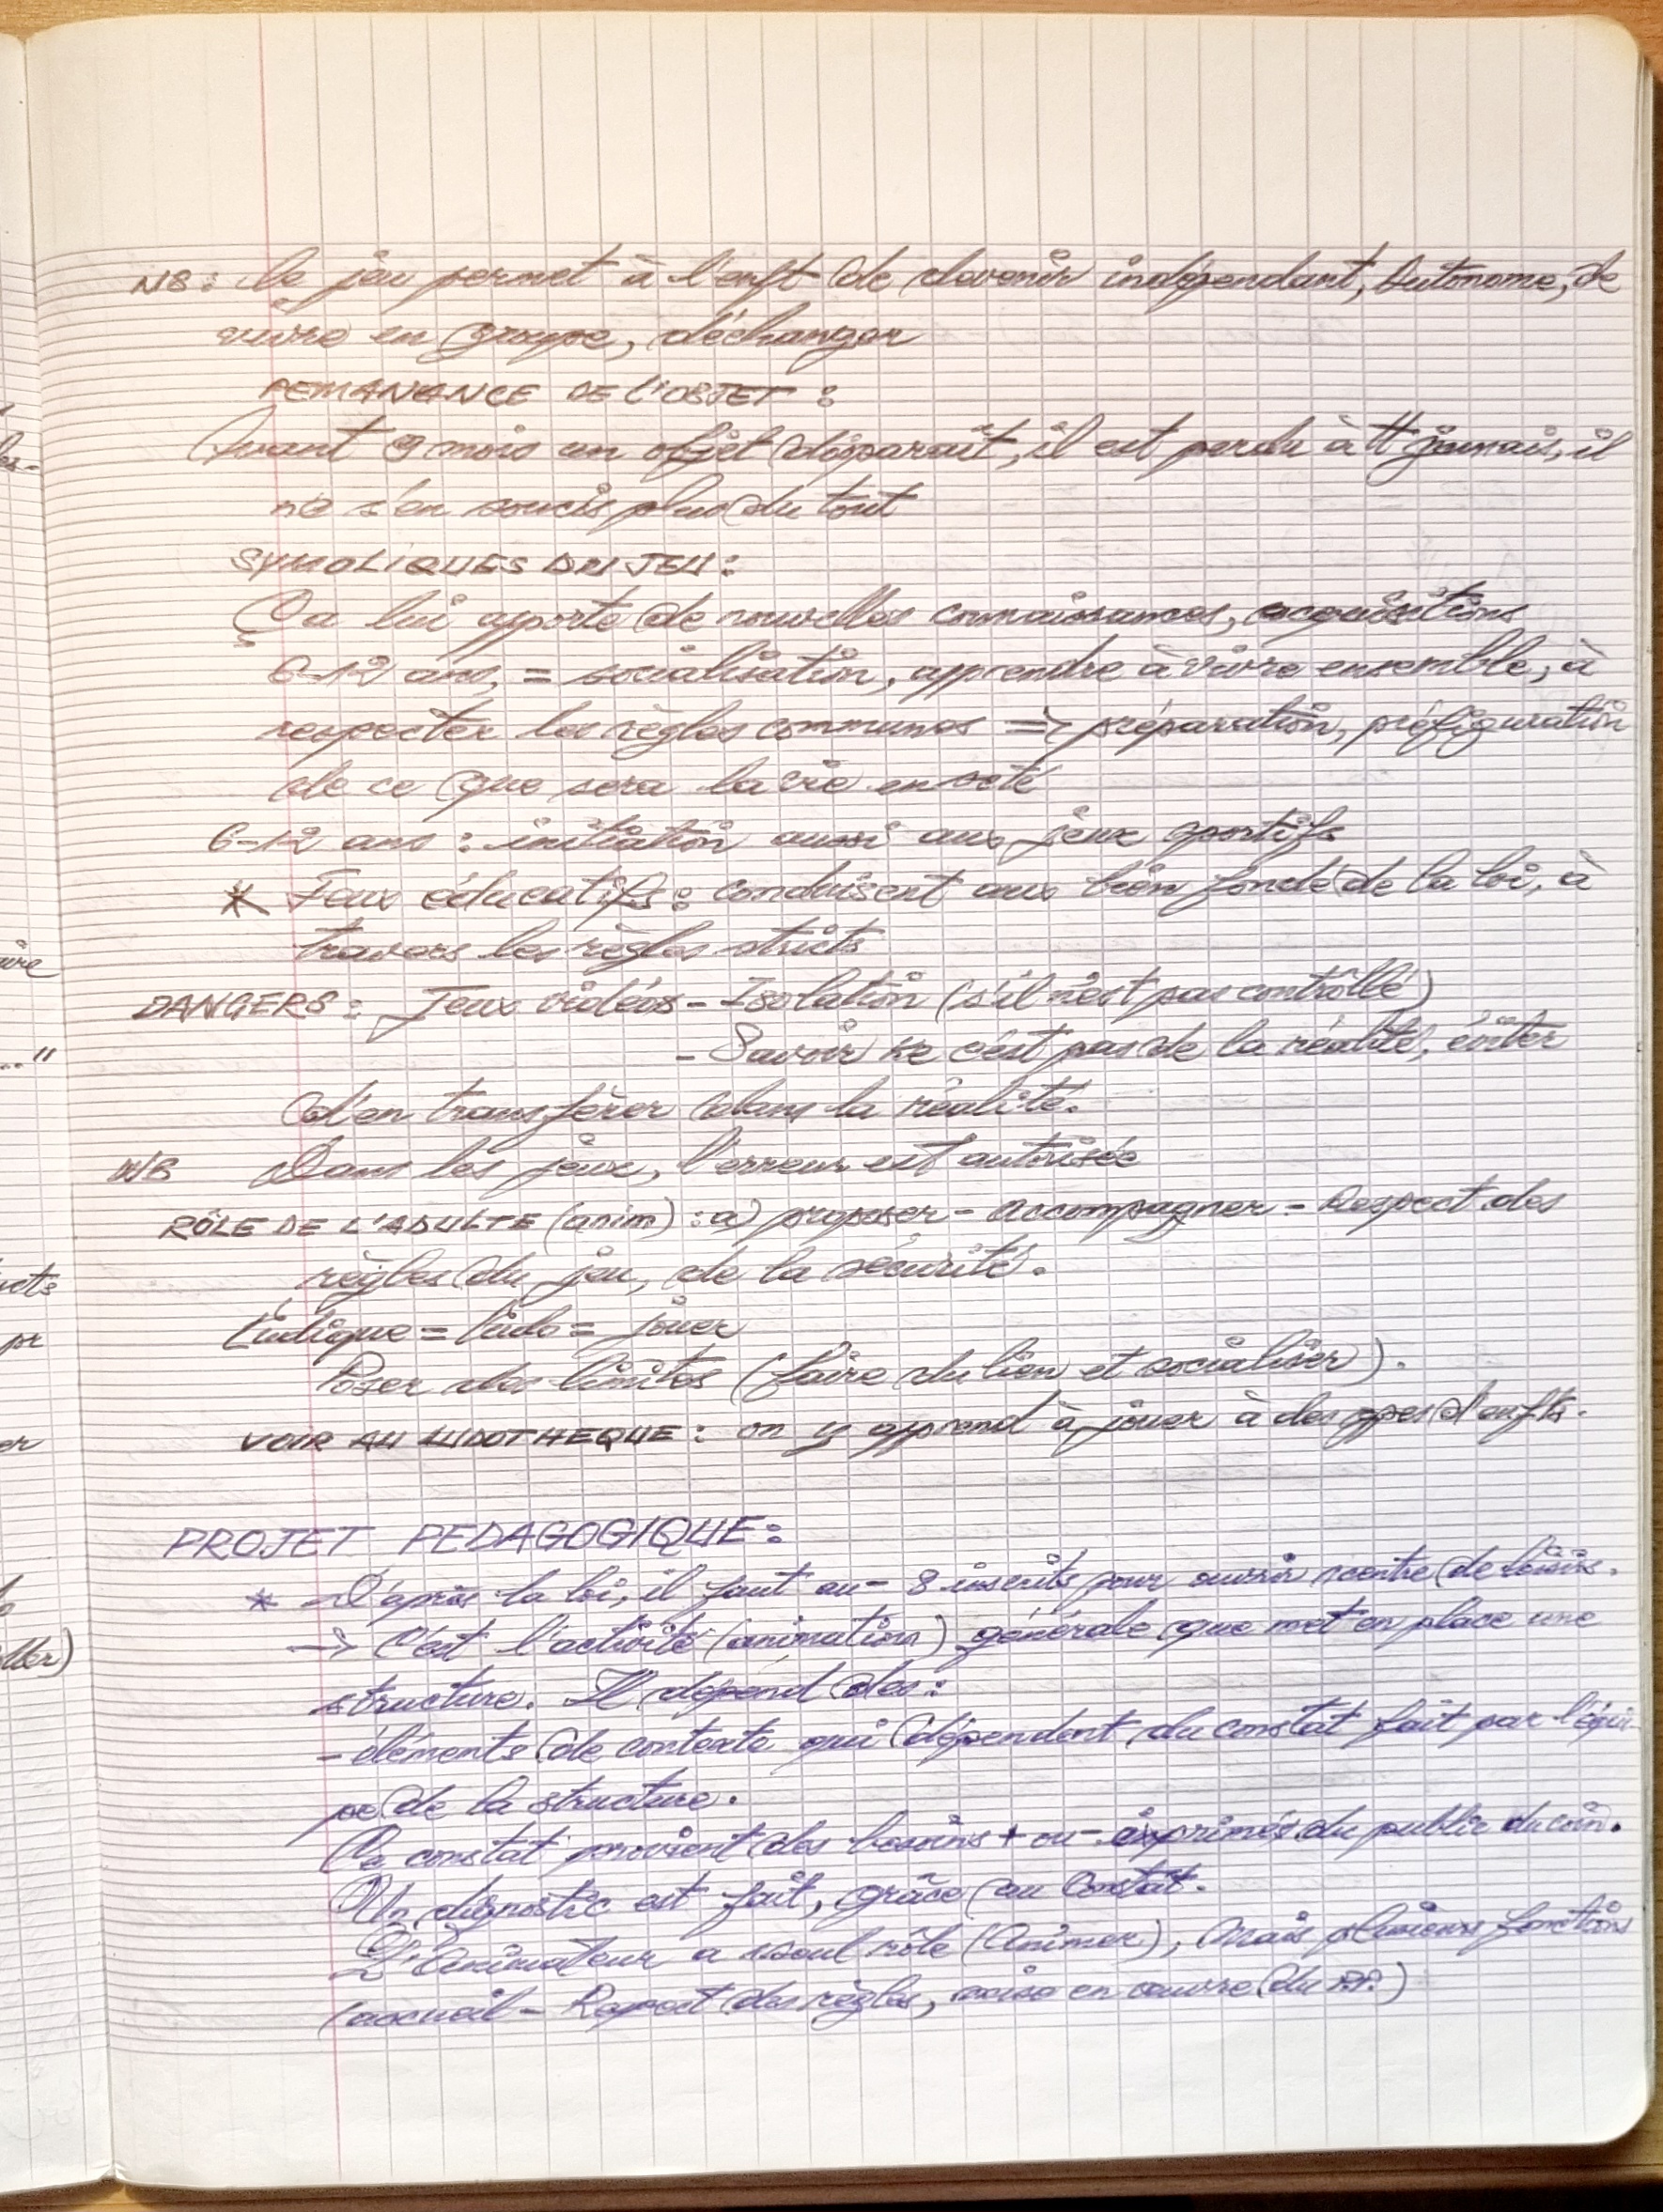 NB: le jeu permet à l'enft de devenir indépendant, Autonome, de
vivre en groupe, d'échanger
PEMANANCE DE L'OBJET :
Avant 9 mois un objet disparait, il est perdu à tt jamais, il
ne s'en soucis plus du tout
SYMOLIQUES DU JEU :
Ça lui apporte de nouvelles connaissances, acquisitions
6-12 ans, = socialisation, apprendre à vivre ensemble, à
respecter les règles communes => préparation, préfiguration
de ce que sera la vie en soté
6-12 ans : initiation aussi aux jeux sportifs
* Jeux éducatifs : conduisent aux bien fondé de la loi, à
travers les règles stricts
DANGERS : Jeux vidéos - Isolation (s'il n'est pas contrôllé)
- Savoir ke c'est pas de la réalité, éviter
d'en transférer dans la réalité.
NB Dans les jeux, l'erreur est autorisée
RÔLE DE L'ADULTE (anim) : a) proposer - accompagner - Respect des
règles du jeu, de la sécurité.
Ludique = Ludo = jouer
Poser des limites (faire du lien et socialiser).
VOIR AU LUDOTHEQUE : on y apprend à jouer à des gpes d'enfts.
PROJET PEDAGOGIQUE :
* D'après la loi, il faut au - 8 inscrits pour ouvrir 1 centre de loisirs.
-> C'est l'activité (animation) générale que met en place une
structure. Il dépend des :
- éléments de contexte qui dépendent du constat fait par l'équi
pe de la structure.
Ce constat provient des besoins + ou - exprimés du public du coin.
Un dignostic est fait, grâce au Constat.
L'Animateur a 1 seul rôle (Animer), Mais plusieurs fonctions
(accueil - Respect des règles, mise en oeuvre du P.P.)